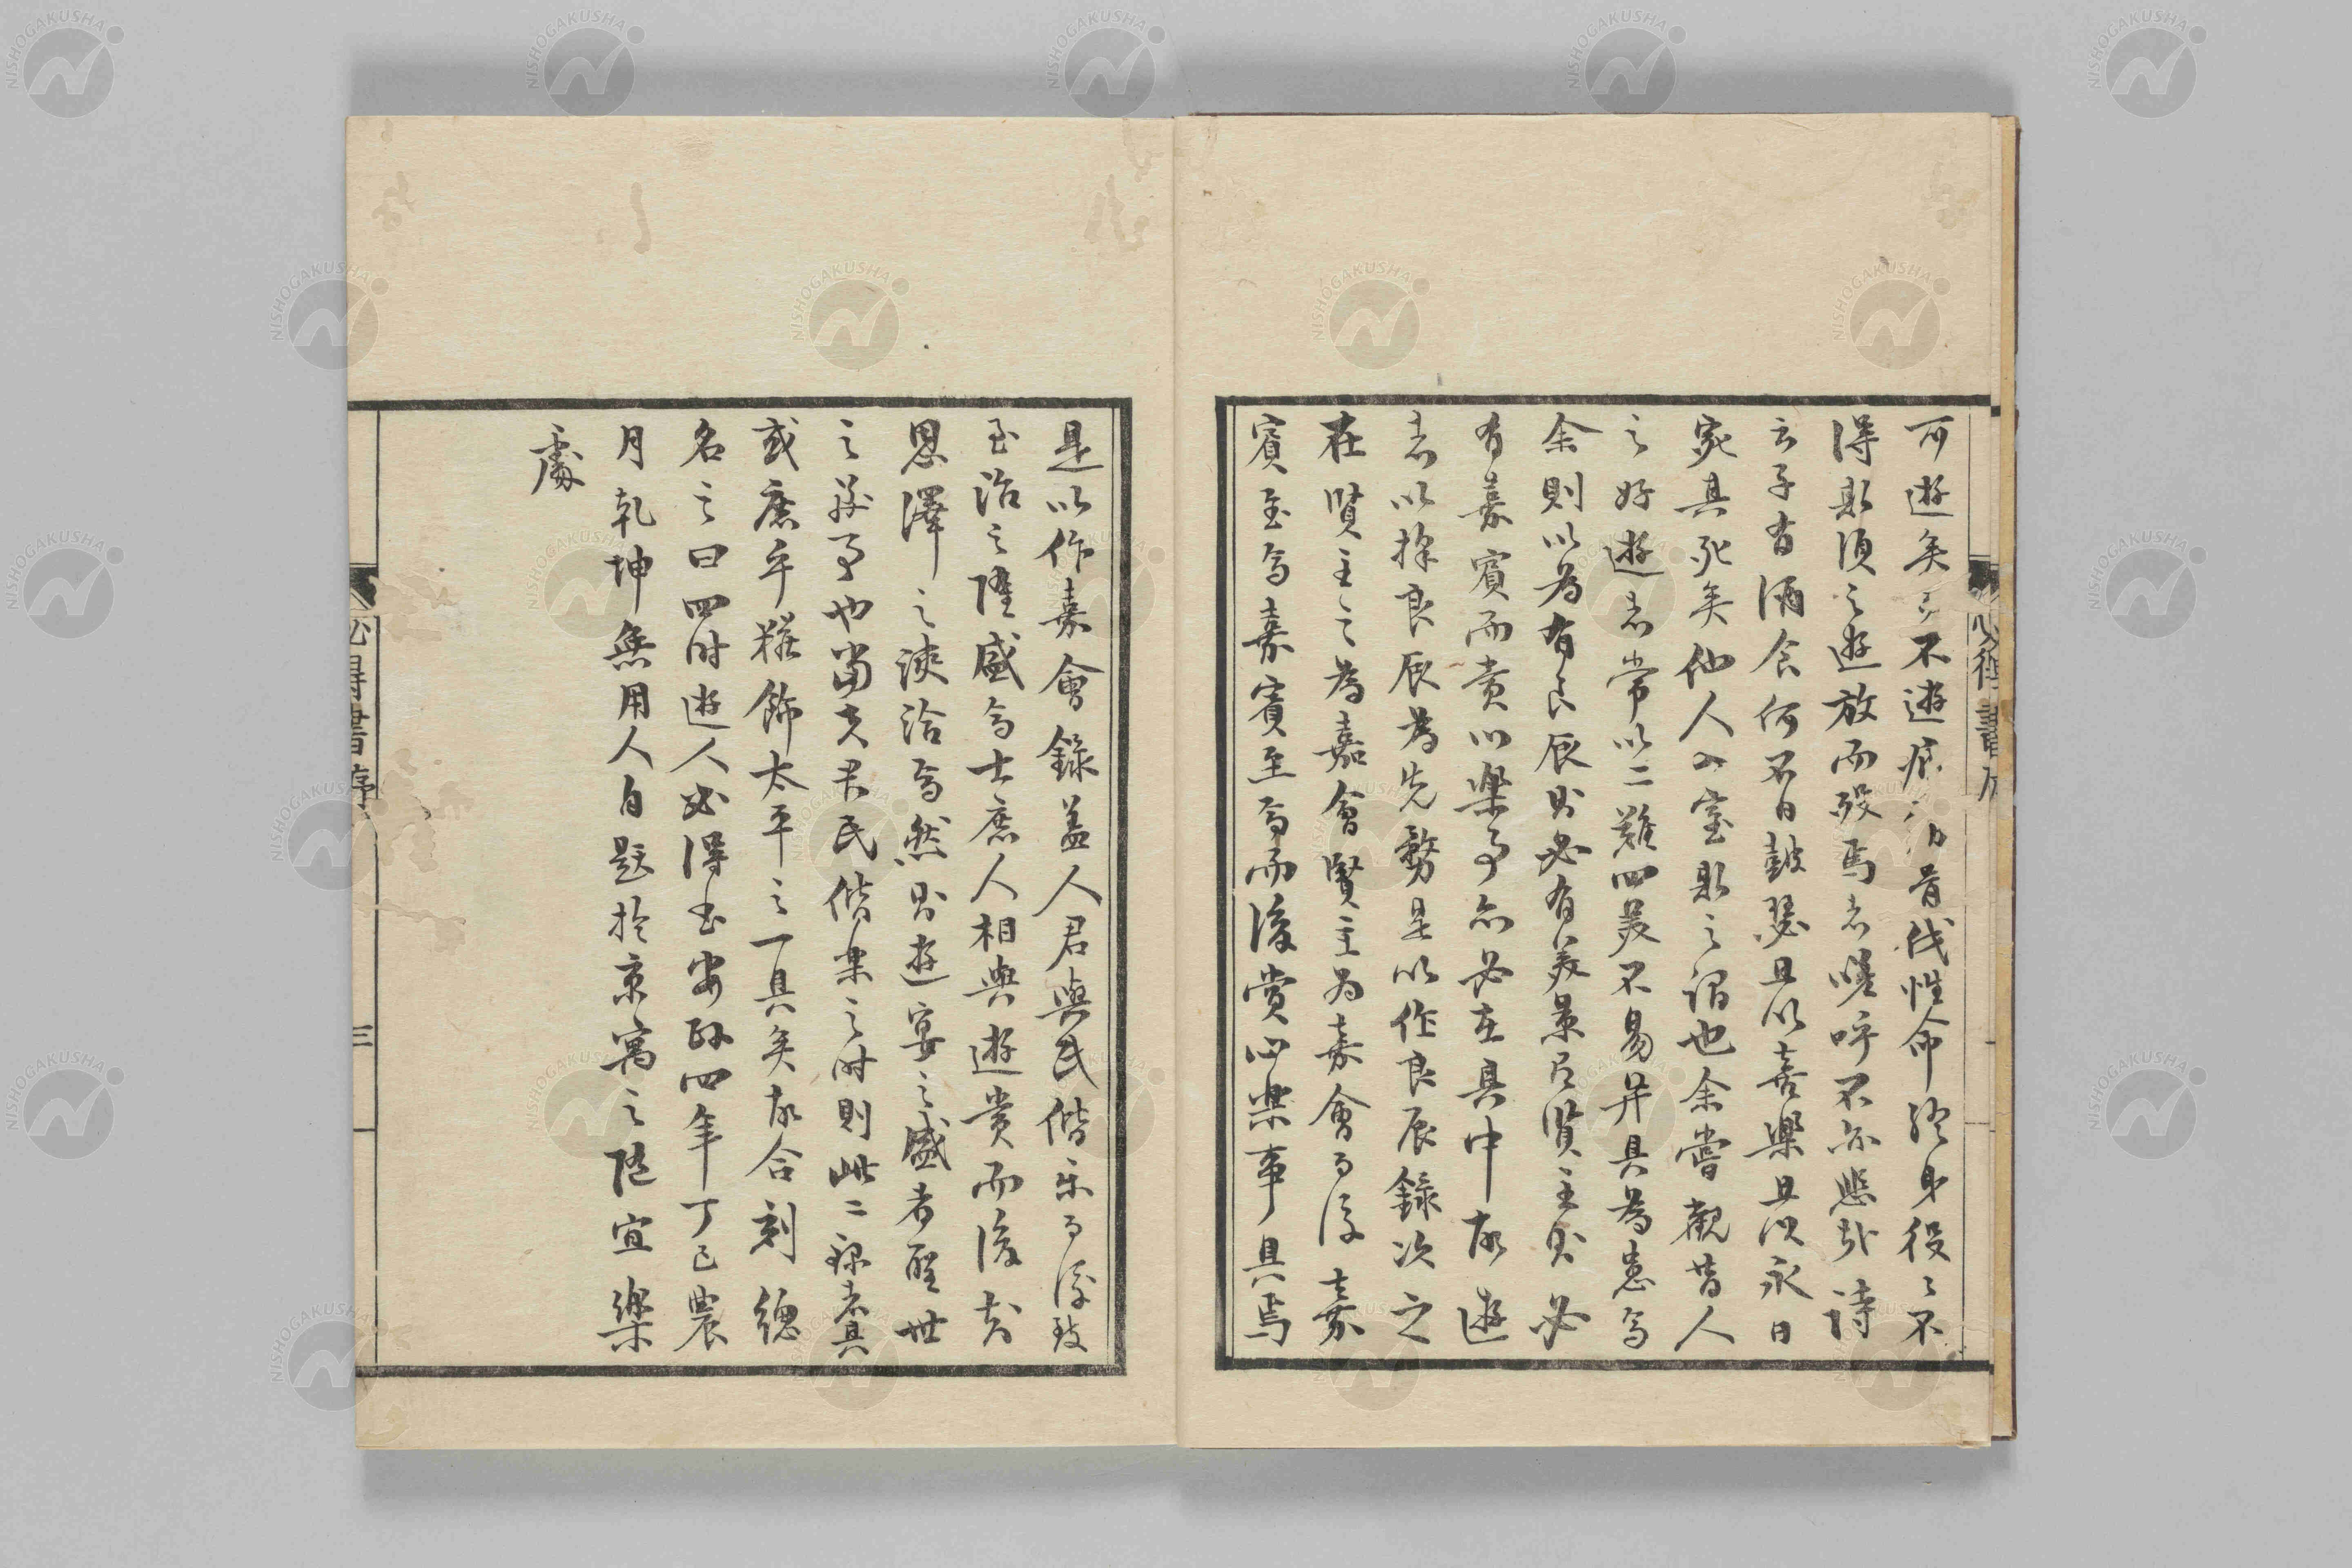 可遊矣而不遊疲筋骨伐性命終身役々不
得斯須之遊放而歿焉者嗟呼不亦悲哉詩
云子有酒食何不日鼓瑟且以喜樂且以永日
宛其死矣他人入室斯之謂也余嘗觀昔人
之好遊者常以二難四美不易并具為患焉
余則以為有良辰則必有美景有賢主則必
有嘉賓而賞心樂事亦必在其中故遊
者以擇良辰為先務是以作良辰錄次之
在賢主之為嘉會賢主為嘉會而後嘉
賓至焉嘉賓至焉而後賞心樂事具焉
是以作嘉會錄蓋人君與民偕樂而後致
至治之隆盛焉士庶人相與遊賞而後知
恩澤之浹洽焉然則遊宴之盛者聖世
之務事也當夫君民偕樂之時則此二錄者其
或庶乎糚飾太平之一具矣故合刻總
名之曰四時遊人必得書安政四年丁巳農
月乾坤無用人自題於京寓之隨宜樂
處
必得書序
三
NISHOGAKUSHA